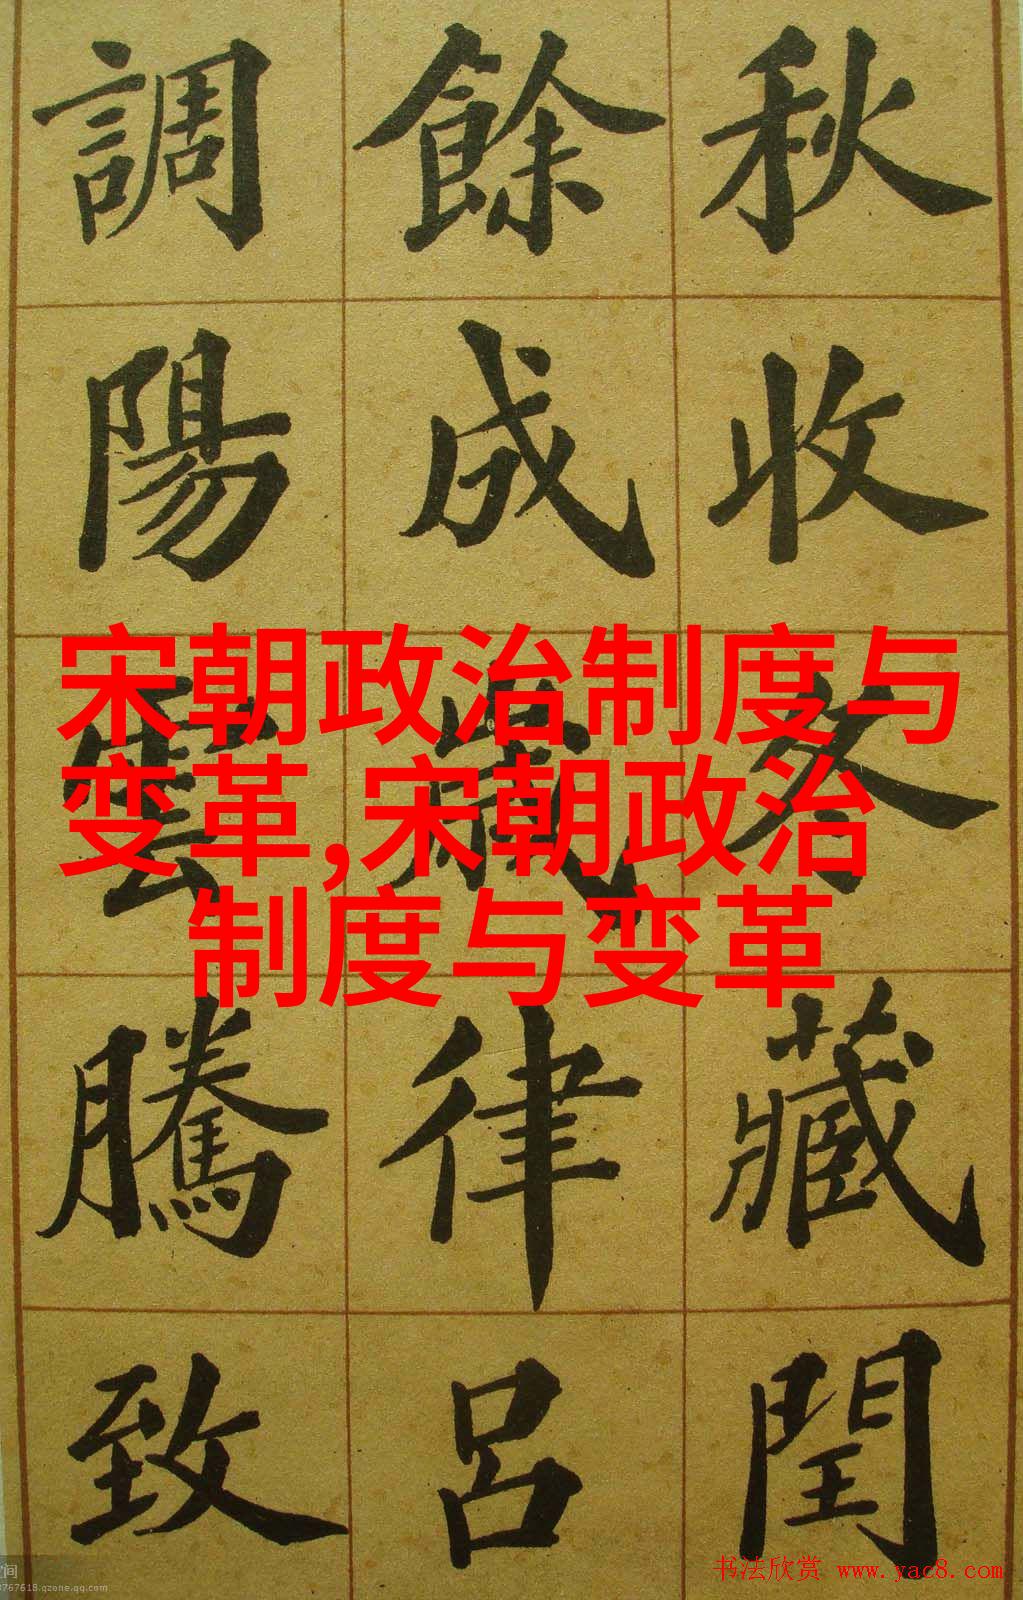 秋收冬藏閏
餘成歲律呂
調陽雲騰致
宋朝政治制度与
变革,宋朝政治
制度与变革
书法欣赏 www.yac8.com
间
767618.qzone.qq.com